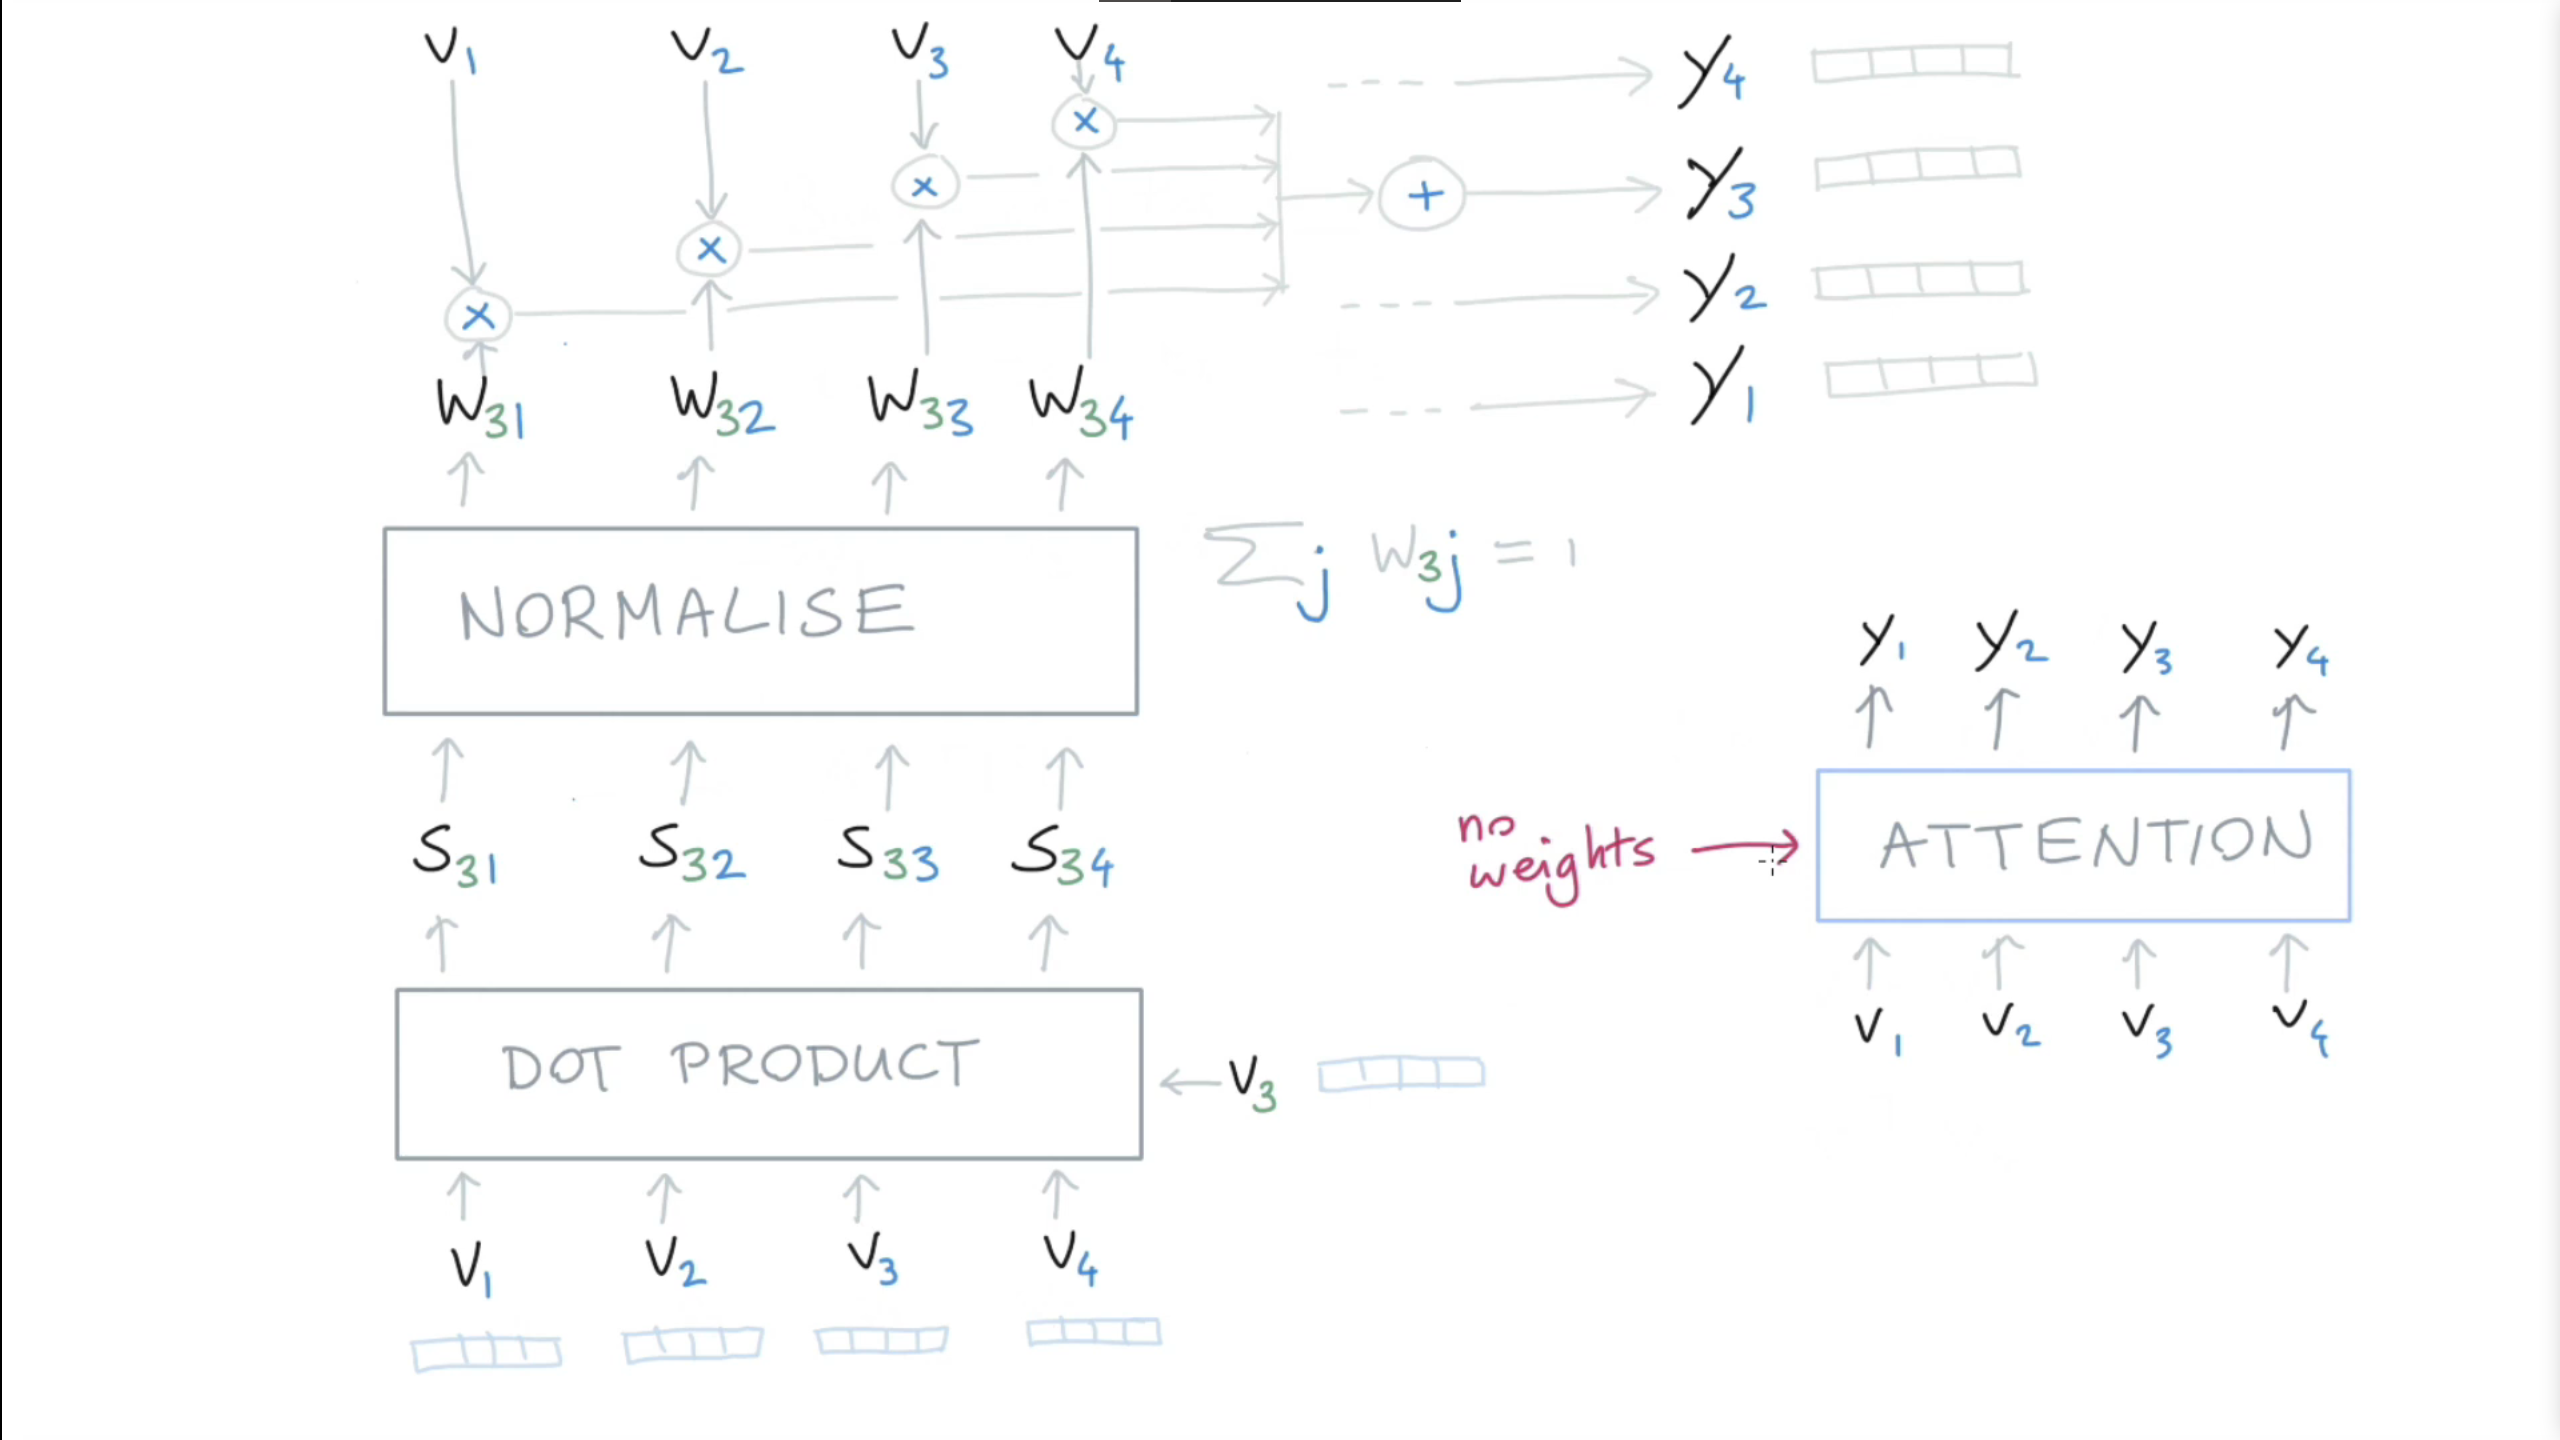 v1 v2 v3 v4
× × × ×
+
y4
y3
y2
y1
w31 w32 w33 w34
NORMALISE
∑j w3j = 1
s31 s32 s33 s34
DOT PRODUCT
v3
v1 v2 v3 v4
y1 y2 y3 y4
no
weights
ATTENTION
v1 v2 v3 v4